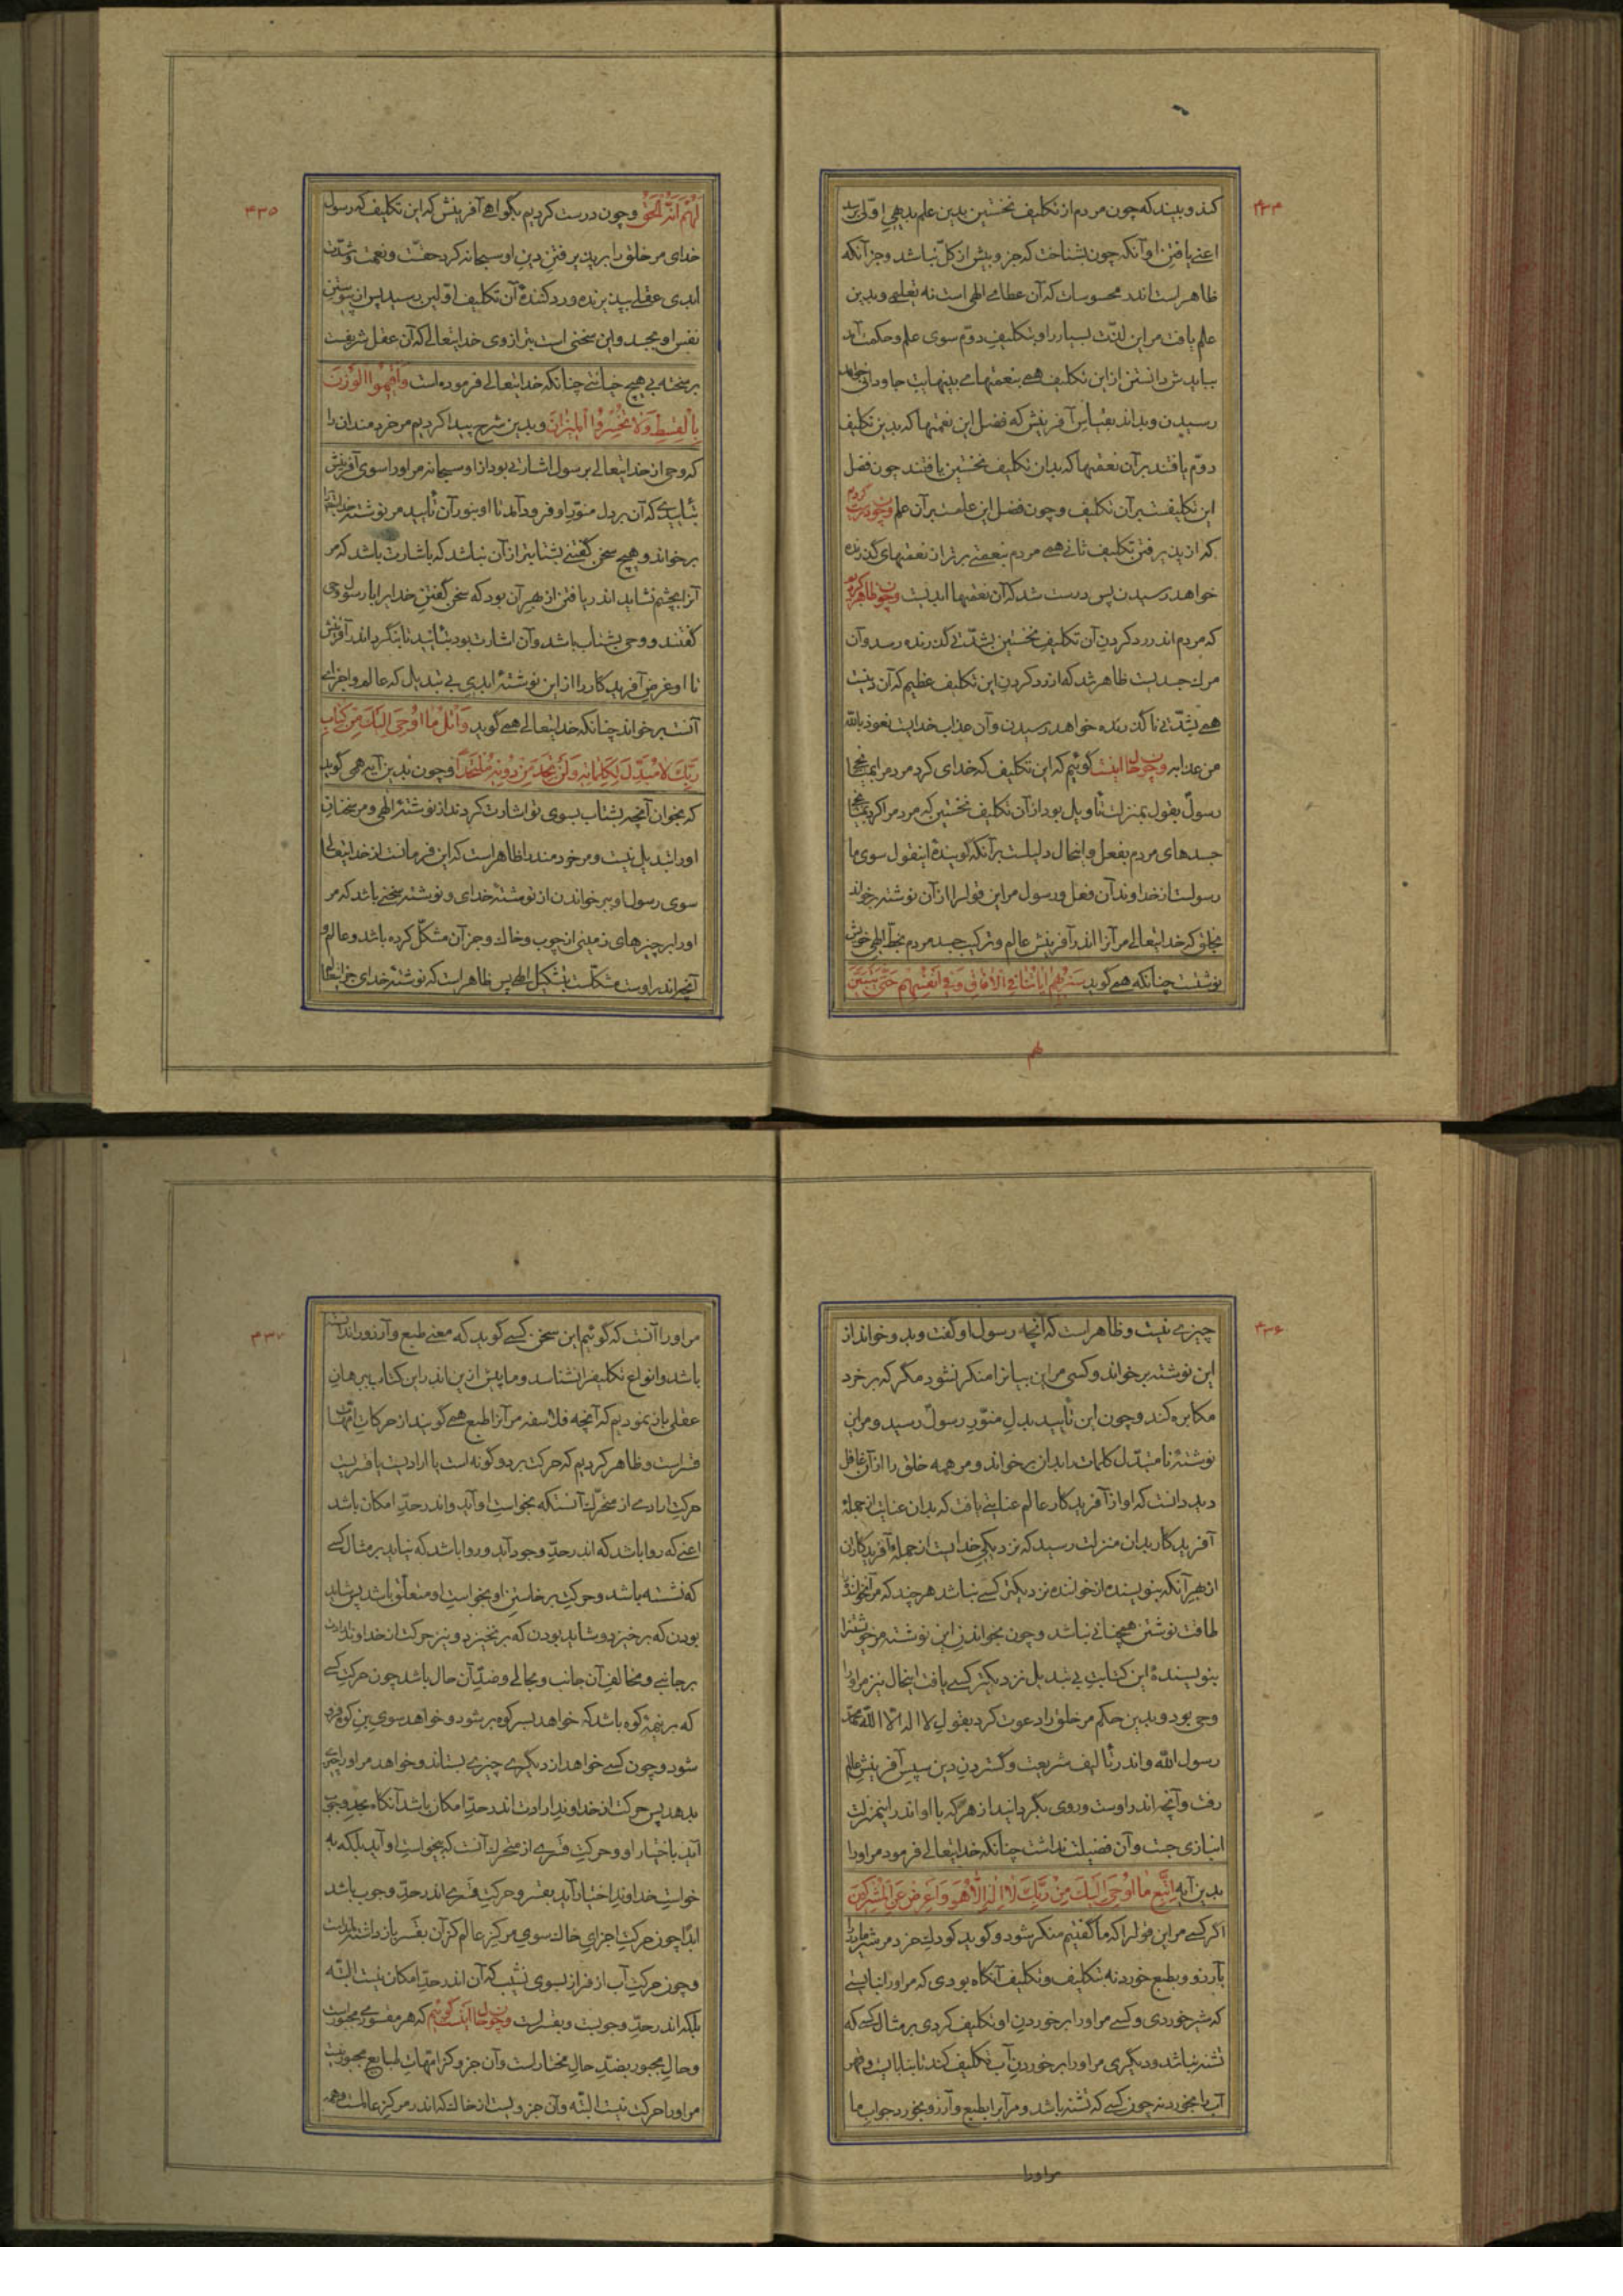 ۴۳۴
کند و بیند که چون مردم از تکلیف نخستین بدین علم بدیهی اوّلی رسد
اعنی یافتن او آنکه چون بشناخت که جزو بیش از کلّ نباشد و جز آنکه
ظاهر است اندر محسوسات که آن عطای الهی است نه تعلیمی و بدین
علم یافت مر این لذّت بسیار را و بتکلیف دوّم سوی علم و حکمت آید
ببایدش دانستن از این تکلیف همی بنعمتهای بینهایت جاودانی خواهد
رسیدن و بداند بقیاس آفرینش که فضل این نعمتها که بدین تکلیف
دوّم یافتند بر آن نعمتها که بدان تکلیف نخستین یافتند چون فضل
این تکلیفست بر آن تکلیف و چون فضل این علمست بر آن علم و چون درست کردیم
که از پذیرفتن تکلیف ثانی همی مردم بنعمتی برتر از نعمتهای گذرنده
خواهد رسیدن پس درست شد که آن نعمتها ابدیست و چون ظاهر کردیم
که مردم اندر رد کردن آن تکلیف نخستین بشدّتی گذرنده رسد و آن
مرگ جسدیست ظاهر شد که از رد کردن این تکلیف عظیم که آن دینست
همی بشدّتی ناگذرنده خواهد رسیدن و آن عذاب خدایست نعوذ بالله
من عذابه و چون حال اینست گوئیم که این تکلیف که خدای کرد مردم را
رسول بقول بمنزلت تأویل بود از آن تکلیف نخستین که مردم را کرد
جسدهای مردم بفعل و اینحال دلیلست بر آنکه گویندهٔ اینقول سوی ما
رسولست از خداوند آن فعل و رسول مر این قول را از آن نوشته برخواند
بخلق که خدایتعالی مر آنرا اندر آفرینش عالم و ترکیب جسد مردم بخطّ الهی خویش
نوشتست چنانکه همی گوید سَنُریهِم آیاتِنا فی الآفاقِ وَ فی اَنفُسِهِم حَتّی یَتَبَیَّنَ
لهم
۴۳۵
لَهُم اَنَّهُ الحَقّ و چون درست کردیم بگواهی آفرینش که این تکلیف که رسول
خدای مر خلق را بر پذیرفتن دین او سبحانه کرد حقّست و نعمت و شدّت
ابدی عقلی بپذیرنده و رد کنندهٔ آن تکلیف اوّلین رسید پس از پیوستن
نفس او بجسد و این سخنی است بترازوی خدایتعالی که آن عقل شریفست
برسخته بی هیچ خیانتی چنانکه خدایتعالی فرموده است وَ اَقیمُوا الوَزنَ
بِالقِسطِ وَ لا تُخسِرُوا المیزانَ و بدین شرح پیدا کردیم مر خردمندان را
که وحی از خدایتعالی برسول اشارتی بود از او سبحانه مر او را سوی آفرینش
بتأییدی که آن بر دل منوّر او فرود آمد تا او بنور آن تأیید مر نوشتهٔ خدایرا
برخواند و هیچ سخن گفتنی بشتابتر از آن نباشد که باشارت باشد که مر
آنرا بچشم نشاید اندر یافتن از بهر آن بود که سخن گفتن خدایرا با رسول وحی
گفتند و وحی بشتاب باشد و آن اشارت بود بتأیید تا بنگرد اندر آفرینش
تا او غرض آفریدگار را از این نوشتهٔ ابدی بی تبدیل که عالم و اجزای
آنست برخواند چنانکه خدایتعالی همی گوید وَ اتلُ ما اُوحِیَ اِلَیکَ مِن کِتابِ
رَبِّکَ لا مُبَدِّلَ لِکَلِماتِه وَ لَن تَجِدَ مِن دُونِه مُلتَحَداً و چون بدین آیه همی گوید
که بخوان آنچه بشتاب بسوی تو اشارت کردند از نوشتهٔ الهی و مر سخنان
او را تبدیل نیست و مر خردمند را ظاهر است که این فرمانست از خدایتعالی
سوی رسول او ببر خواندن از نوشتهٔ خدای و نوشته سخنی باشد که مر
او را بر چیزهای زمینی از چوب و خاک و جز آن مشکّل کرده باشد و عالم و
آنچه اندر اوست مشکّلست بتشکیل الهی پس ظاهر است که نوشتهٔ خدای جز اینها
۴۳۶
چیزی نیست و ظاهر است که آنچه رسول او گفت و بدو خواند از
این نوشته برخواند و کسی مر این بیانرا منکر نشود مگر که بر خرد
مکابره کند و چون این تأیید بدل منوّر رسول رسید و مر این
نوشتهٔ نامتبدّل کلمات را بدان برخواند و مر همه خلق را از آن غافل
دید دانست که او از آفریدکار عالم عنایتی یافت که بدان عنایت از جملهٔ
آفریدکار بدان منزلت رسید که نزدیکی خدایست از جملهٔ آفریدکاران
از بهر آنکه بنویسنده از خواننده نزدیکتر کسی نباشد هر چند که مر آن خواننده
طاقت نوشتن همچنانی نباشد و چون بخواندن این نوشته مر خویشتن را
بنویسندهٔ این کتابت بی تبدیل نزدیکتر کسی یافت اینحال نیز مر او را
وحی بود و بدین حکم مر خلق را دعوت کرد بقول لا اله الّا الله محمّد
رسول الله و اندر تألیف شریعت و گستردن دین سپس آفرینش عالم
رفت و آنچه اندر اوست و روی بگردانید از هر که با او اندر اینمنزلت
انبازی جست و آن فضیلت نداشت چنانکه خدایتعالی فرمود مر او را
بدین آیه اِتَّبِع ما اُوحِیَ اِلَیکَ مِن رَبِّکَ لا اِلهَ اِلّا هُوَ وَ اَعرِض عَنِ المُشرِکینَ
اگر کسی مر این قول را که ما گفتیم منکر شود و گوید کودک خرد مر شیر مادر را
بآرزو و بطبع خورد نه بتکلیف و تکلیف آنگاه بودی که مر او را نبایستی
که شیر خوردی و کسی مر او را بر خوردن او تکلیف کردی بر مثال کسی که
تشنه نباشد و دیگری مر او را بر خوردن آب تکلیف کند تا بنابایست و قهر
آب را بخورد نه چون کسی که تشنه باشد و مر آنرا بطبع و آرزو بخورد جواب ما
مر او را
۴۳۷
مر او را آنست که گوئیم این سخن کسی گوید که معنی طبع و آرزو را ندانسته
باشد و انواع تکلیف را نشناسد و ما پیش از این اندر این کتاب ببرهان
عقلی باز نمودیم که آنچه فلاسفه مر آنرا طبع همی گویند از حرکات امّهات
قسر است و ظاهر کردیم که حرکت بر دو گونه است یا ارادیست یا قسریست
حرکت ارادی از متحرّک آنستکه بخواست او آید و اندر حدّ امکان باشد
اعنی که روا باشد که اندر حدّ وجود آید و روا باشد که نیاید بر مثال کسی
که نشسته باشد و حرکت برخاستن او بخواست او متعلّق باشد پس شاید
بودن که برخیزد و شاید بودن که بر نخیزد و نیز حرکت از خداوند ارادت
بر جانبی و مخالف آن جانب و بحالی و ضدّ آن حال باشد چون حرکت کسی
که بر نیمهٔ کوه باشد که خواهد بسر کوه بر شود و خواهد سوی بن کوه فرود
شود و چون کسی خواهد از دیگری چیزی بستاند و خواهد مر او را چیزی
بدهد پس حرکت از خداوند ارادت اندر حدّ امکان باشد آنگاه بحدّ وجوب
آید باختیار او و حرکت قسری از متحرّک آنست که نخواست او آید بلکه به
خواست خداوند اختیار آید بقسر و حرکت قسری اندر حدّ وجوب باشد
ابدا چون حرکت اجزای خاک سوی مرکز عالم کز آن بقسر باز داشته
و چون حرکت آب از فراز بسوی نشیب که آن اندر حدّ امکان نیست البتّه
بلکه اندر حدّ وجوبست و بقسرست و چون حال اینست گوئیم که هر مقسوری مجبورست
و حال مجبور بضدّ حال مختار است و آن جزو کز امّهات طبایع مجبور نیست
مر او را حرکت نیست البتّه و آن جزویست از خاک که اندر مرکز عالمست و همه